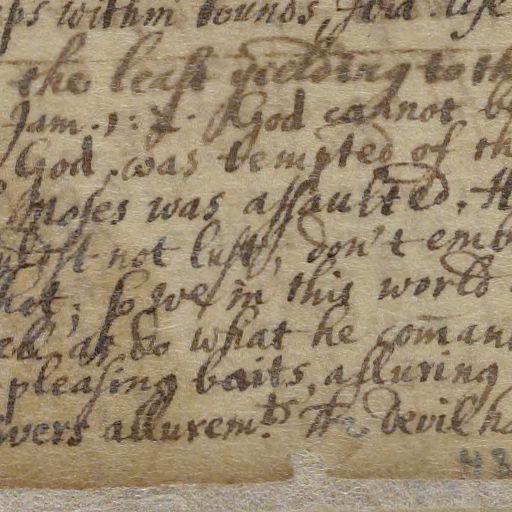 ps within bounds,
the least yeelding to th
Jam. 1: God cannot b
God was tempted of th
Moses was assaulted. H
not lust, don't emb
hot; so we in this world
as do what he comān
pleasing baits, alluring
wers allurem.ts The devil ha
43